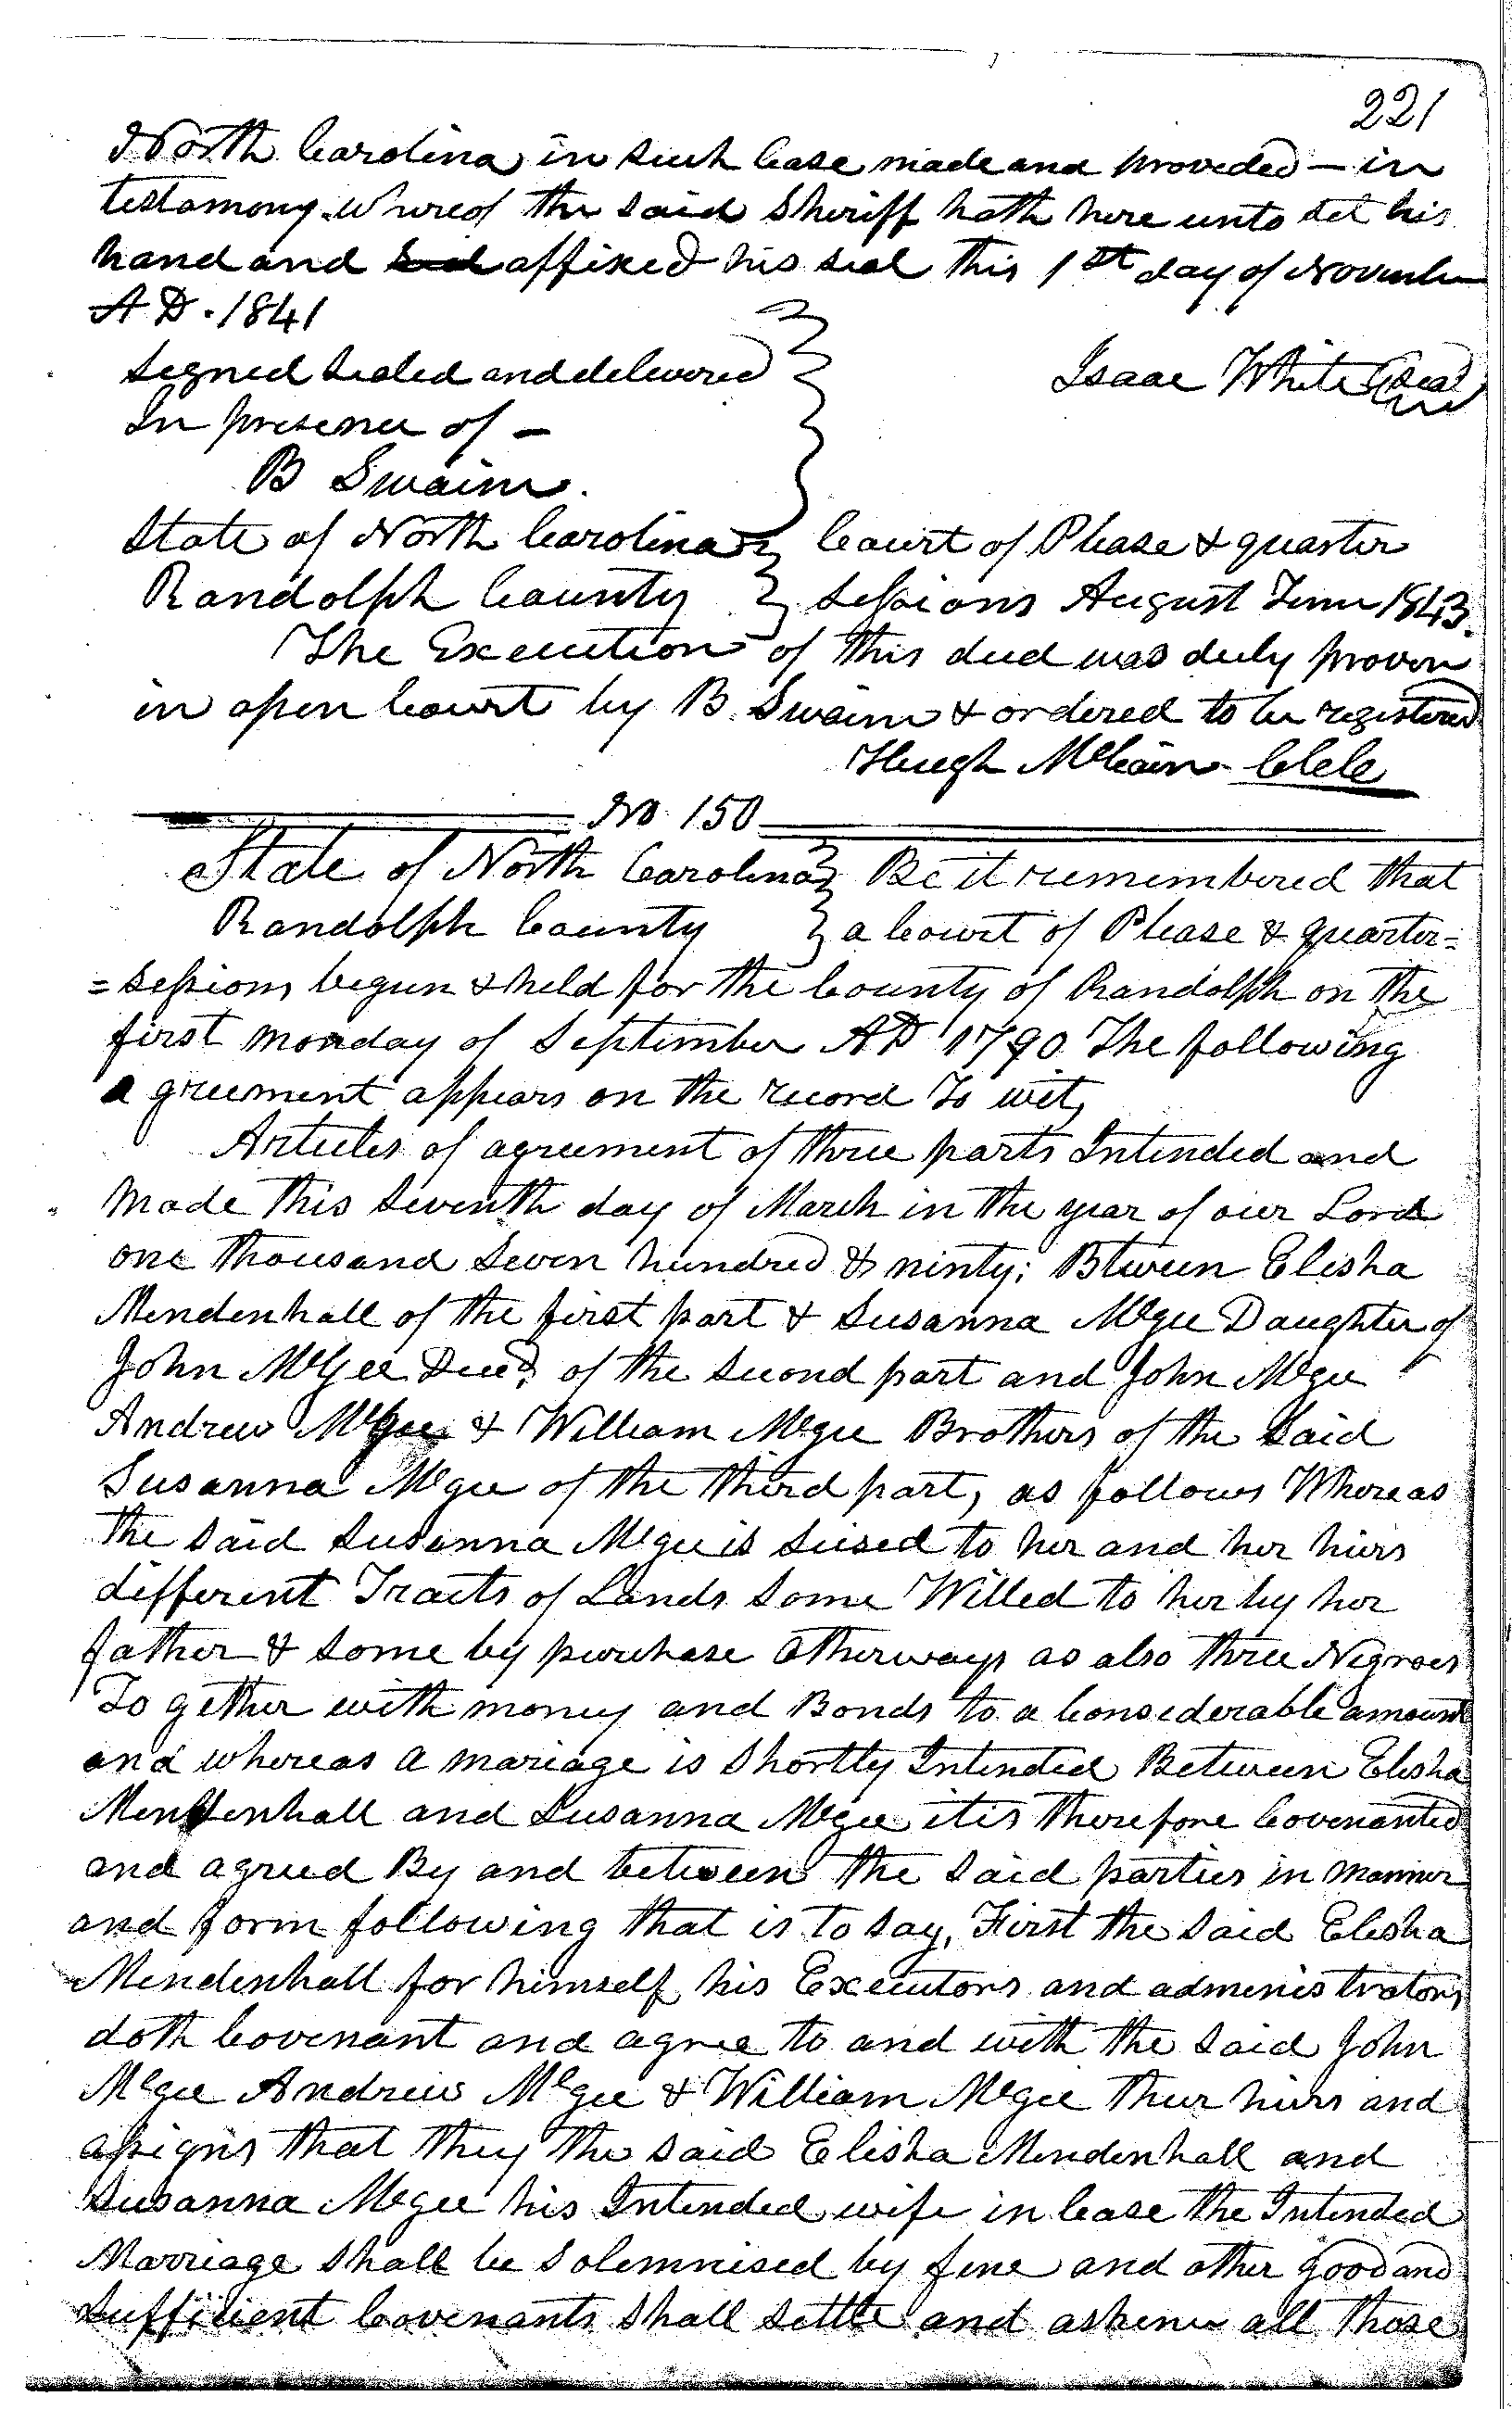 221
North Carolina in such Case made and provided — in
testamony whereof the said Sheriff hath here unto set his
hand and affixed his seal this 1st day of November
A D. 1841
Signed sealed and delivered
In presence of —
Isaac White (Seal)
B Swaim.
State of North Carolina } Court of Please & quarter
Randolph County } Sessions August Term 1843.
The Execution of this deed was duly proven
in open Court by B. Swaim & ordered to be registered
Hugh McCain Clk
No. 150
State of North Carolina } Be it remembered that
Randolph County } a Court of Please & quarter=
=Sessions begun & held for the County of Randolph on the
first monday of September AD 1790 The following
agreement appears on the record To wit,
Articles of agreement of three parts Intended and
Made this Seventh day of March in the year of our Lord
one thousand Seven hundred & ninty; Btween Elisha
Mendenhall of the first part & Susanna Mcgee Daughter of
John McGee Decd, of the Second part and John Mcgee
Andrew McGee & William Mcgee Brothers of the Said
Susanna Mcgee of the third part, as follows Whereas
the said Susanna Mcgee is Seised to her and her heirs
different Tracts of Lands Some Willed to her by her
father & some by purchase otherways as also three Negroes
To gether with money and Bonds to a Considerable amount
and whereas a mariage is Shortly Intended Between Elisha
Mendenhall and Susanna Mcgee it is therefore Covenanted
and agreed By and between the Said parties in manner
and form following that is to say, First the Said Elisha
Mendenhall for himself his Executors and administrators
doth Covenant and agree to and with the Said John
Mcgee Andrew Mcgee & William Mcgee their heirs and
assigns that they the said Elisha Mendenhall and
Susanna Mcgee his Intended wife in Case the Intended
Marriage Shall be Solemnised by fine and other good and
Sufficient Covenants Shall Settle and all those